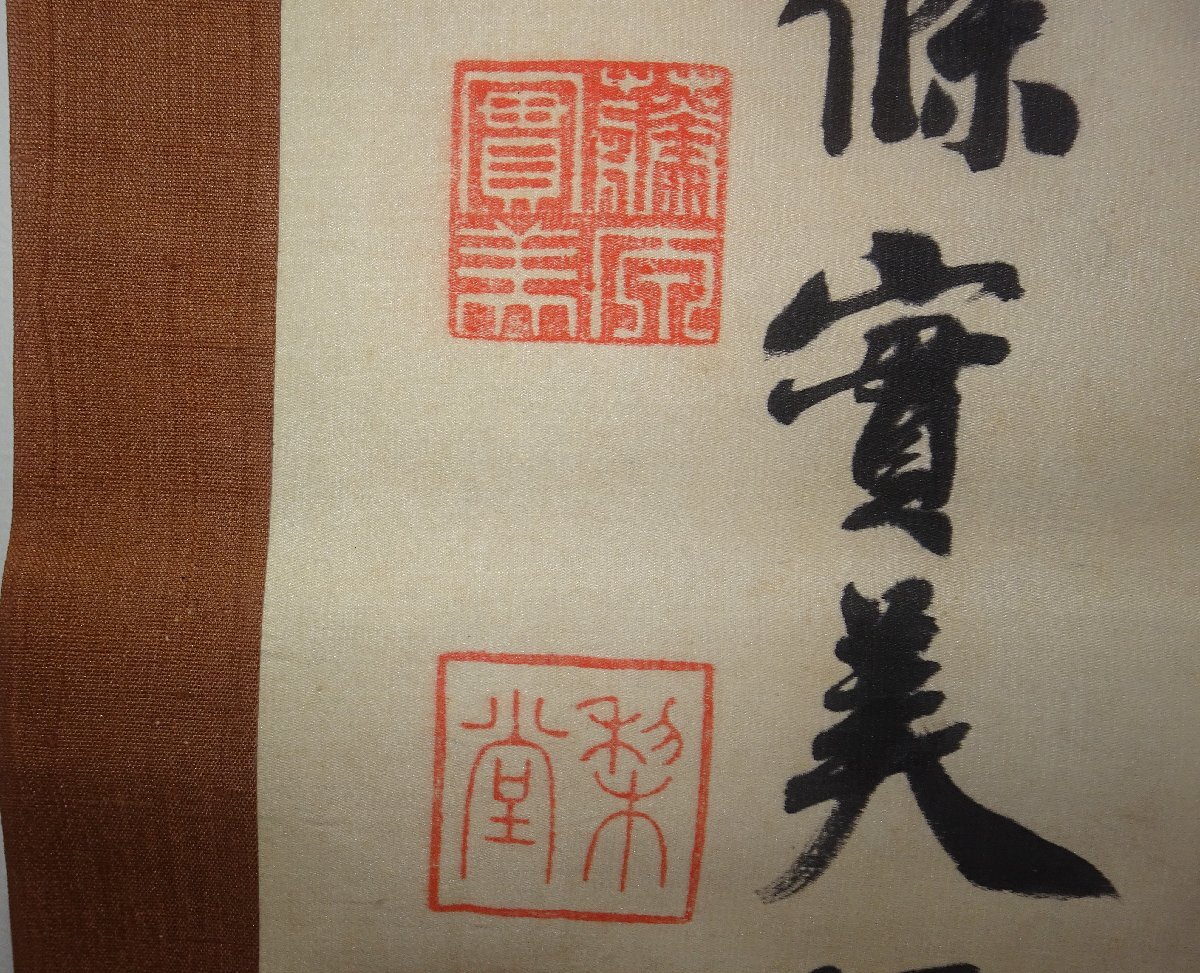 條實美
藤原實美
梨堂